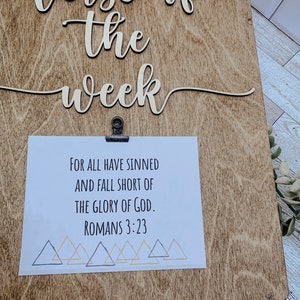 verse of
the
week
For all have sinned
and fall short of
the glory of God.
Romans 3:23